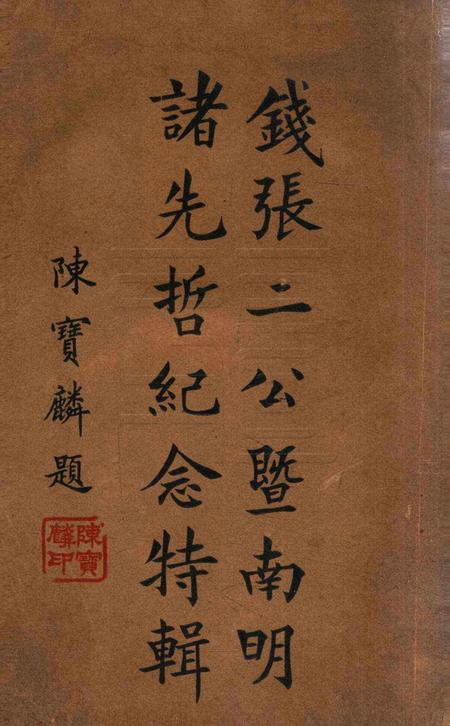 錢張二公暨南明
諸先哲紀念特輯
陳寶麟題
陳寶
麟印